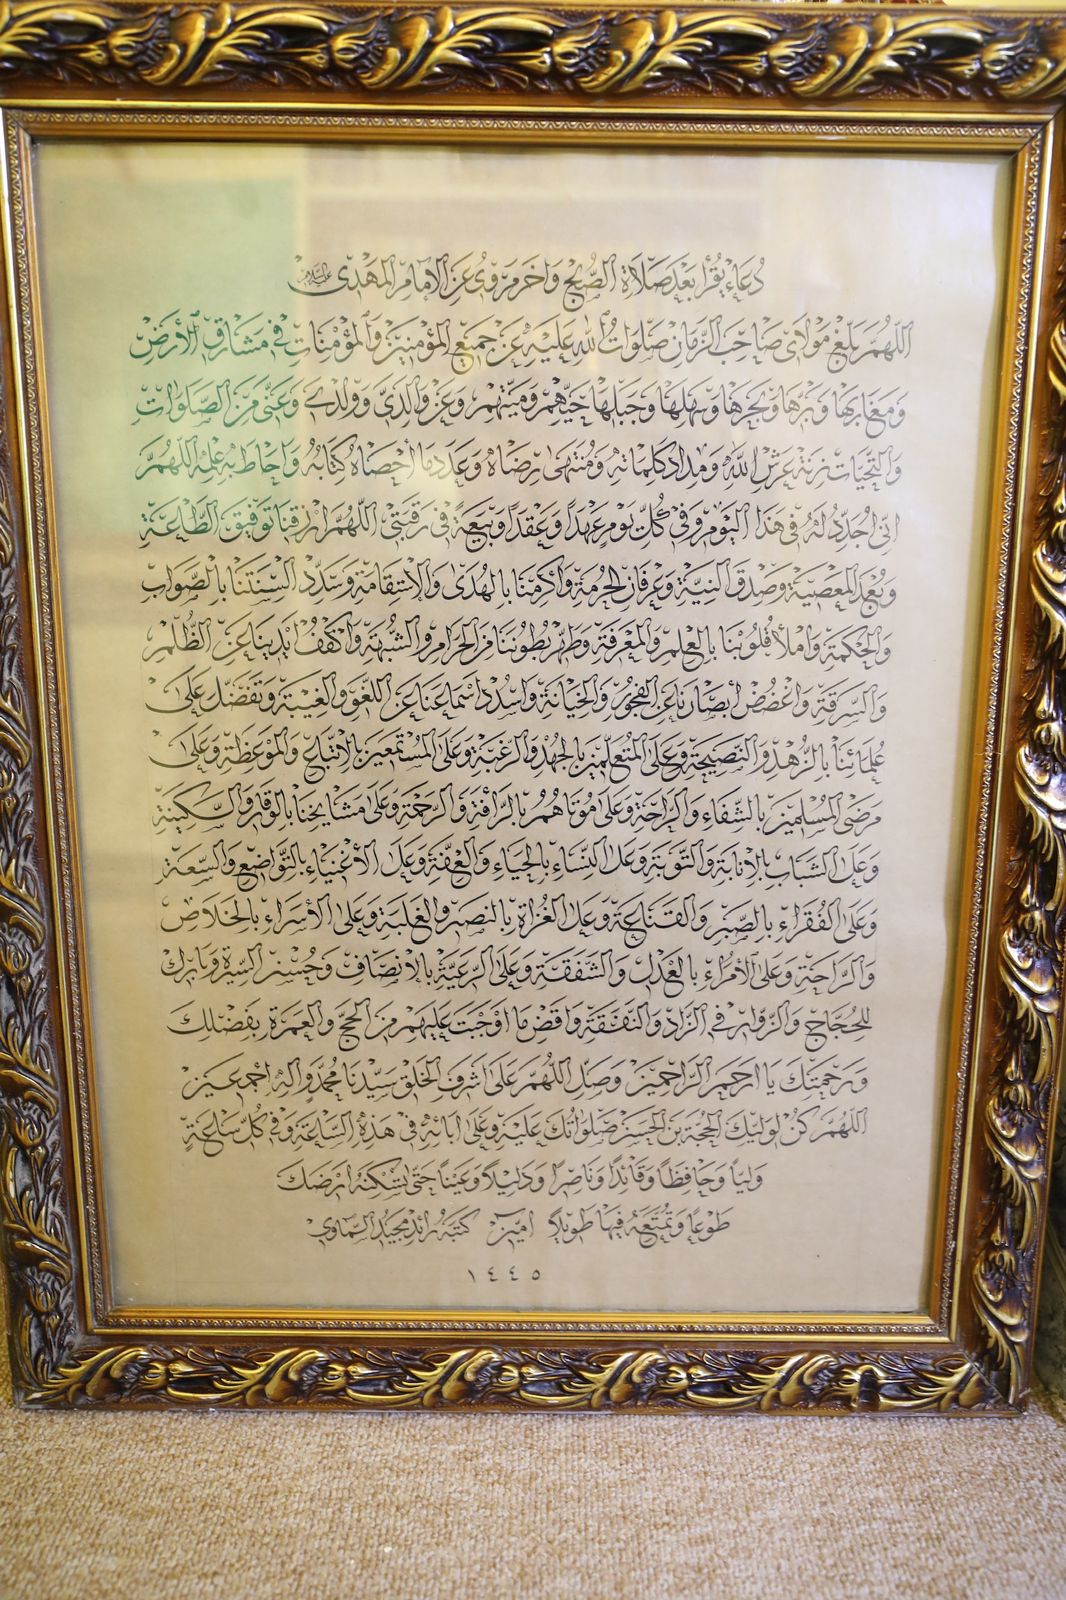 دُعَاء يُقْرأ بَعْدَ صَلَاةِ الصُّبْحِ وَآخَر مَرْوِيٌ عَنِ الإمَامِ المَهْدِي عليه السلام
اللّهُمَّ بَلِّغْ مَوْلَايَ صَاحِبَ الزَّمَانِ صَلَوَاتُ اللهِ عَلَيْهِ عَنْ جَمِيْعِ المُؤْمِنِيْنَ وَالمُؤْمِنَاتِ فِي مَشَارِقِ الأَرْضِ
وَمَغَارِبِهَا وَبَرِّهَا وَبَحْرِهَا وَسَهْلِهَا وَجَبَلِهَا حَيِّهِمْ وَمَيِّتِهِمْ وَعَنْ وَالِدَيَّ وَوُلْدِي وَعَنِّي مِنَ الصَّلَوَاتِ
وَالتَّحِيَّاتِ زِنَةَ عَرْشِ اللهِ وَمِدَادَ كَلِمَاتِهِ وَمُنْتَهَى رِضَاهُ وَعَدَدَ مَا أَحْصَاهُ كِتَابُهُ وَاَحَاطَ بِهِ عِلْمُهُ اللّهُمَّ
اِنِّي اُجَدِّدُ لَهُ فِي هَذَا اليَوْمِ وَفِي كُلِّ يَوْمٍ عَهْدَاً وَعَقْدَاً وَبَيْعَةً فِي رَقَبَتِي اللّهُمَّ ارْزُقْنَا تَوْفِيْقَ الطَّاعَةِ
وَبُعْدَ المَعْصِيَةِ وَصِدْقَ النِيَّةِ وَعِرْفَانَ الحُرْمَةِ وَاَكْرِمْنَا بِالهُدَىٰ وَالإسْتِقَامَةِ وَسَدِّدْ اَلْسِنَتَنَا بِالصَّوَابِ
وَالحِكْمَةِ وَامْلأْ قُلُوْبَنَا بِالعِلْمِ وَالمَعْرِفَةِ وَطَهِّرْ بُطُوْنَنَا مِنَ الحَرَامِ وَالشُّبْهَةِ وَاكْفُفْ اَيْدِيَنَا عَنِ الظُّلْمِ
وَالسَّرِقَةِ وَاغْضُضْ أَبْصَارَنَا عَنِ الفُجُوْرِ وَالخِيَانَةِ وَاسْدُدْ اَسْمَاعَنَا عَنِ اللَّغْوِ وَالغِيْبَةِ وَتَفَضَّلْ عَلَىٰ
عُلَمَائِنَا بِالزُّهْدِ وَالنَّصِيْحَةِ وَعَلَىٰ المُتَعَلِّمِيْنَ بِالجُهْدِ وَالرَّغْبَةِ وَعَلَىٰ المُسْتَمِعِيْنَ بِالإتِّبَاعِ وَالمَوْعِظَةِ وَعَلَىٰ
مَرْضَى المُسْلِمِيْنَ بِالشِّفَاءِ وَالرَّاحَةِ وَعَلَىٰ مَوْتَاهُمْ بِالرَّأْفَةِ وَالرَّحْمَةِ وَعَلَىٰ مَشَايِخِنَا بِالوَقَارِ وَالسَّكِيْنَةِ
وَعَلَىٰ الشَّبَابِ بِالإنَابَةِ وَالتَّوْبَةِ وَعَلَىٰ النِّسَاءِ بِالحَيَاءِ وَالعِفَّةِ وَعَلَىٰ الأَغْنِيَاءِ بِالتَّوَاضُعِ وَالسِّعَةِ
وَعَلَىٰ الفُقَرَاءِ بِالصَّبْرِ وَالقَنَاعَةِ وَعَلَىٰ الغُزَاةِ بِالنَصْرِ وَالغَلَبَةِ وَعَلَىٰ الأُسَرَاءِ بِالخَلَاصِ
وَالرَّاحَةِ وَعَلَىٰ الأُمَرَاءِ بِالعَدْلِ وَالشَّفَقَةِ وَعَلَىٰ الرَّعِيَّةِ بِالإنْصَافِ وَحُسْنِ السِّيْرَةِ وَبَارِكْ
لِلحُجَّاجِ وَالزُّوَّارِ فِي الزَّادِ وَالنَّفَقَةِ وَاقْضِ مَا اَوْجَبْتَ عَلَيْهِمْ مِنَ الحَجِّ وَالعُمْرَةِ بِفَضْلِكَ
وَرَحْمَتِكَ يَا اَرْحَمَ الرَّاحِمِيْنَ وَصَلِّ اللّهُمَّ عَلَىٰ اَشْرَفِ الخَلْقِ سَيِّدِنَا مُحَمَّدٍ وَآلِهِ اَجْمَعِيْنَ
اللّهُمَّ كُنْ لِوَلِيِّكَ الحُجَّةِ بْنِ الحَسَنْ صَلَوَاتُكَ عَلَيْهِ وَعَلَىٰ ابَائِهِ فِي هَذِهِ السَّاعَةِ وَفِي كُلِّ سَاعَةٍ
وَلِيَّاً وَحَافِظَاً وَقَائِدَاً وَنَاصِرَاً وَدَلِيْلَاً وَعَيْنَاً حَتَّىٰ تُسْكِنَهُ اَرْضَكَ
طَوْعَاً وَتُمَتِّعَهُ فِيْهَا طَوِيْلاً امِيْن كَتَبَهُ رَائِد مَجِيْد السَّمَاوِي
١٤٤٥